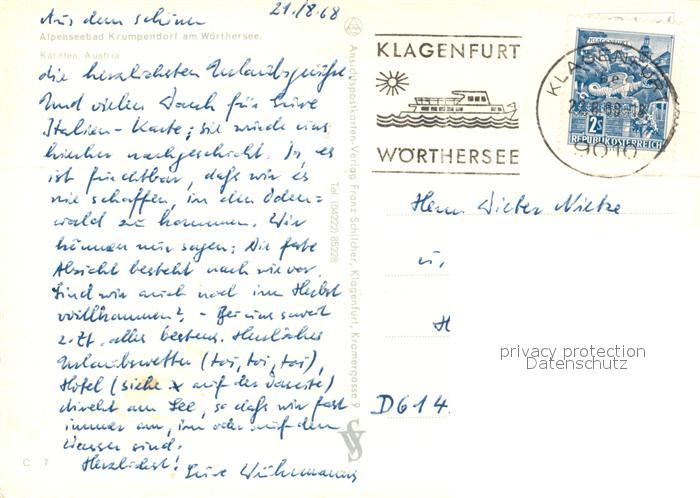 Aus dem schönen
21./8.68
Alpenseebad Krumpendorf am Wörthersee.
Kärnten, Austria
die herzlichsten Urlaubsgrüße
Und vielen Dank für Eure
Italien-Karte; sie wurde uns
hierher nachgeschickt. Ja, es
ist furchtbar, daß wir es
nie schaffen, in den Oden-
wald zu kommen. Wir
können nur sagen: Die feste
Absicht besteht nach wie vor.
Sind wir auch noch im Herbst
willkommen? - Bei uns soweit
z. Zt. alles bestens. Herrliches
Urlaubswetter (toi, toi, toi),
Hotel (siehe x auf der Vorseite)
direkt am See, so daß wir fast
immer am, im oder auf dem
Wasser sind.
Herzlichst! Eure
C 7
Ansichtspostkarten-Verlag Franz Schilcher, Klagenfurt, Kramergasse 9
Tel. (04222) 85228
KLAGENFURT
WÖRTHERSEE
KLAGENFURT
9010
KLAGENFURT
2S
REPUBLIK ÖSTERREICH
Herrn Dieter
u.
H
D 614
privacy protection
Datenschutz